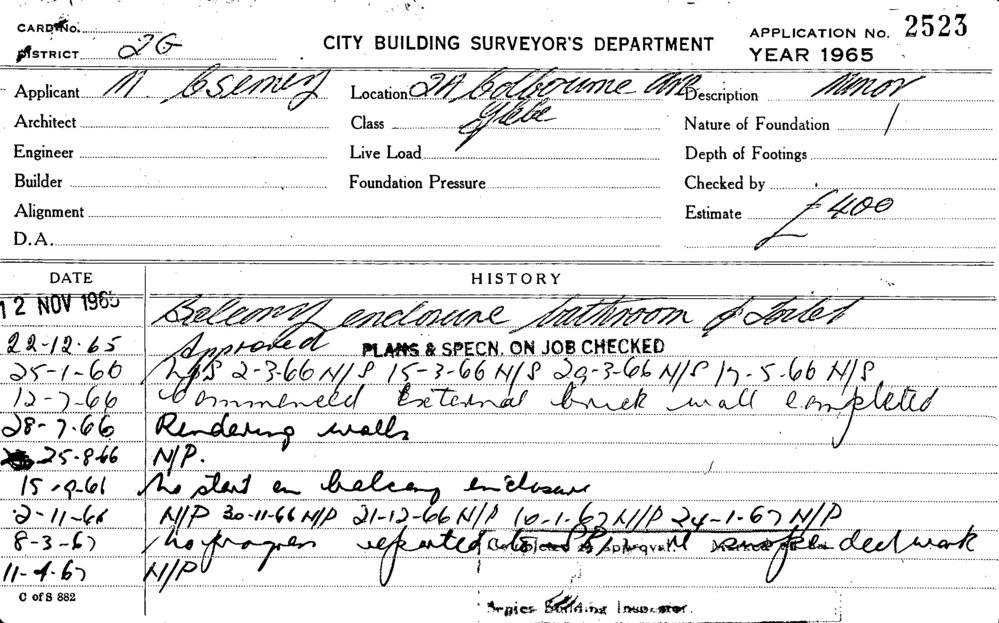 CARD No.
DISTRICT 2G
CITY BUILDING SURVEYOR'S DEPARTMENT
APPLICATION No. 2523
YEAR 1965
Applicant M.
Location 2A Colbourne Ave Glebe
Description Minor
Architect
Class
Nature of Foundation
Engineer
Live Load
Depth of Footings
Builder
Foundation Pressure
Checked by
Alignment
Estimate £400
D.A.
DATE
HISTORY
12 NOV 1965 Balcony enclosure bathroom & toilet
22-12-65 Approved PLANS & SPECN. ON JOB CHECKED
25-1-66 N/S 2-3-66 N/S 15-3-66 N/S 29-3-66 N/S 17-5-66 N/S
12-7-66 Commenced External brick wall completed
28-7-66 Rendering walls
25-8-66 N/P.
15-9-66 No start on balcony enclosure
2-11-66 N/P 30-11-66 N/P 21-12-66 N/P 10-1-67 N/P 24-1-67 N/P
8-3-67 No progress reported work
11-4-67 N/P
C of S 882
Building Inspector.